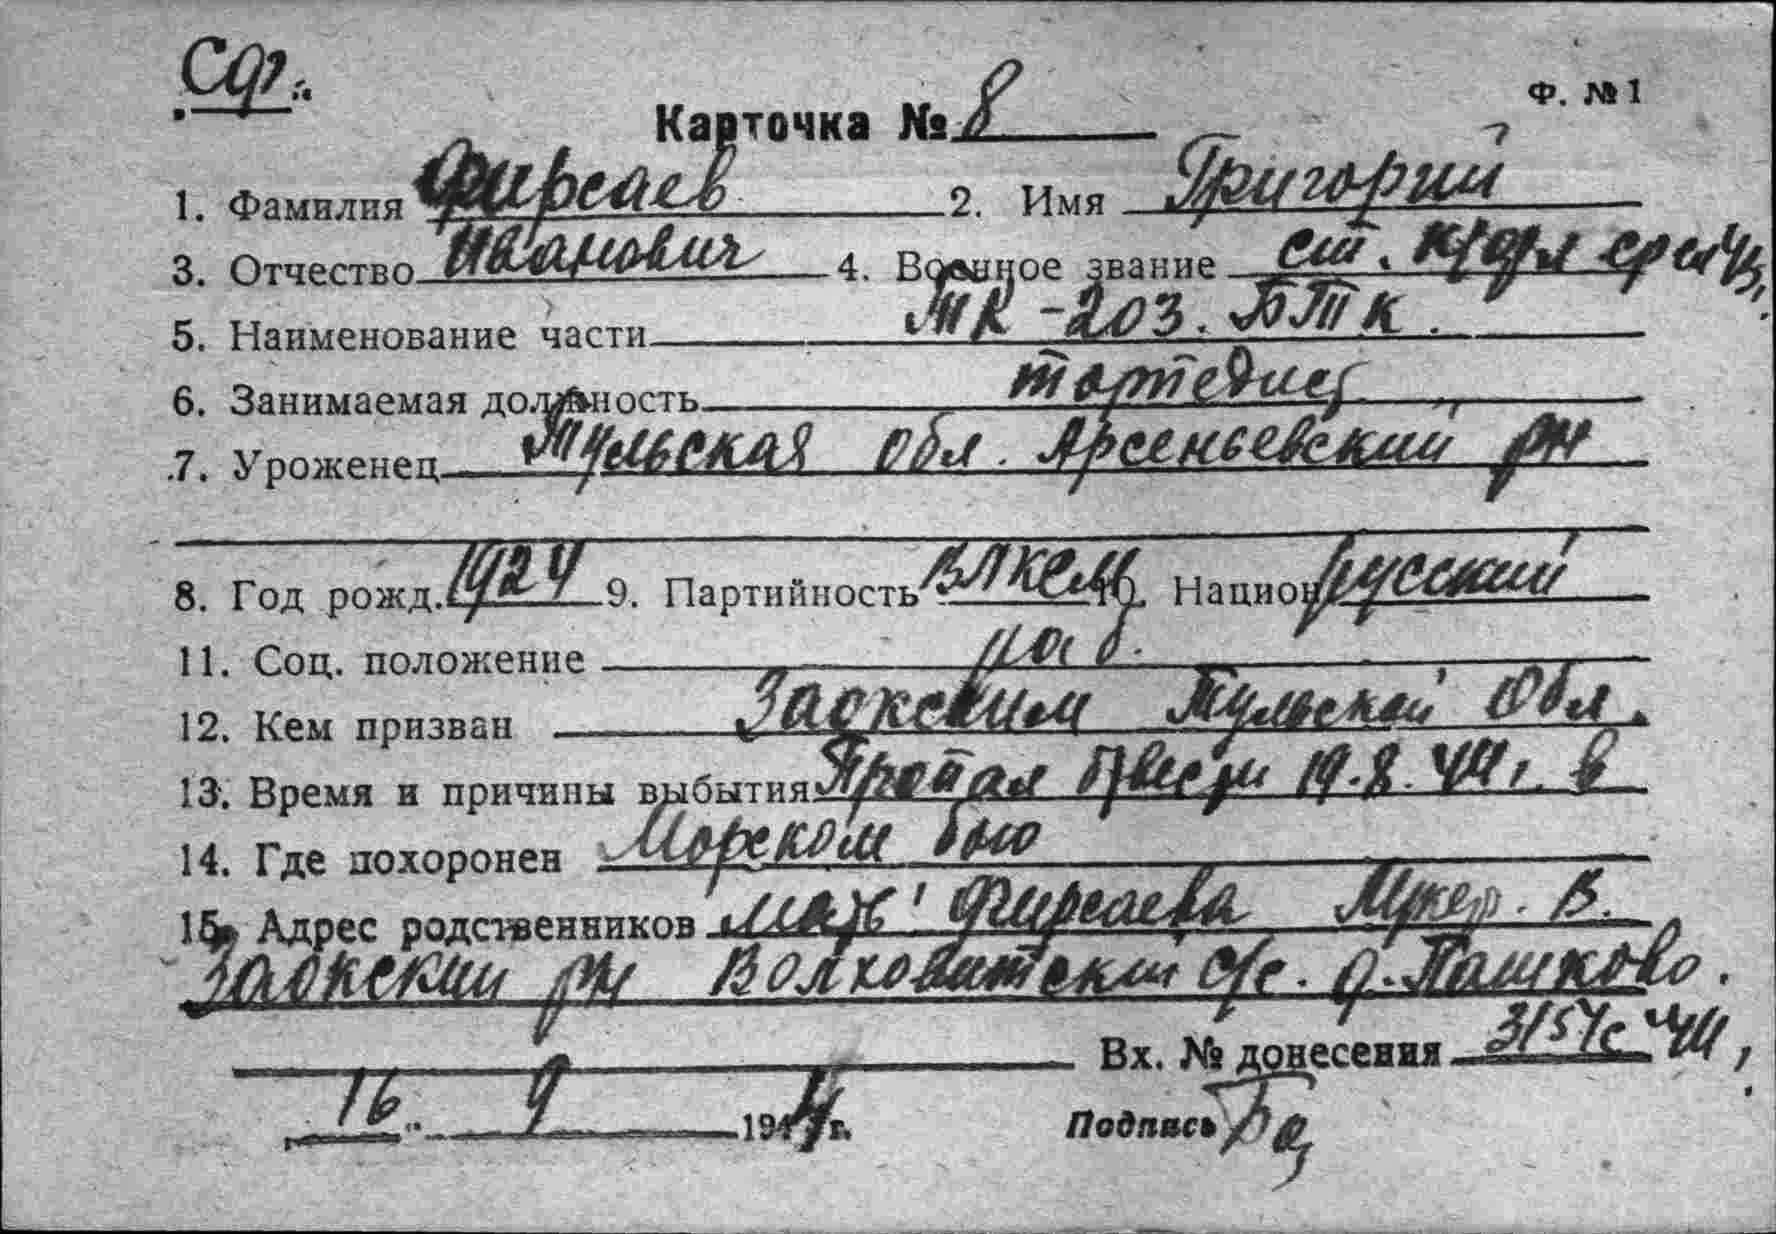 Сф.
Ф. № 1
Карточка № 8
1. Фамилия Фирсаев 2. Имя Григорий
3. Отчество Иванович 4. Военное звание ст. кр
5. Наименование части ТК-203. БТК.
6. Занимаемая должность торпедист
7. Уроженец Тульская обл. Арсеньевский рн
8. Год рожд. 1924 9. Партийность ВЛКСМ 10. Национ. русский
11. Соц. положение раб.
12. Кем призван Заокским Тульской Обл.
13. Время и причины выбытия Пропал б/вести 19.8.44 г. в
14. Где похоронен Морском бою
15. Адрес родственников мать Фирсаева В.
Заокский рн с/с. д. Пашково.
Вх. № донесения 3154с 44 г.
"16" 9 1944 г. Подпись